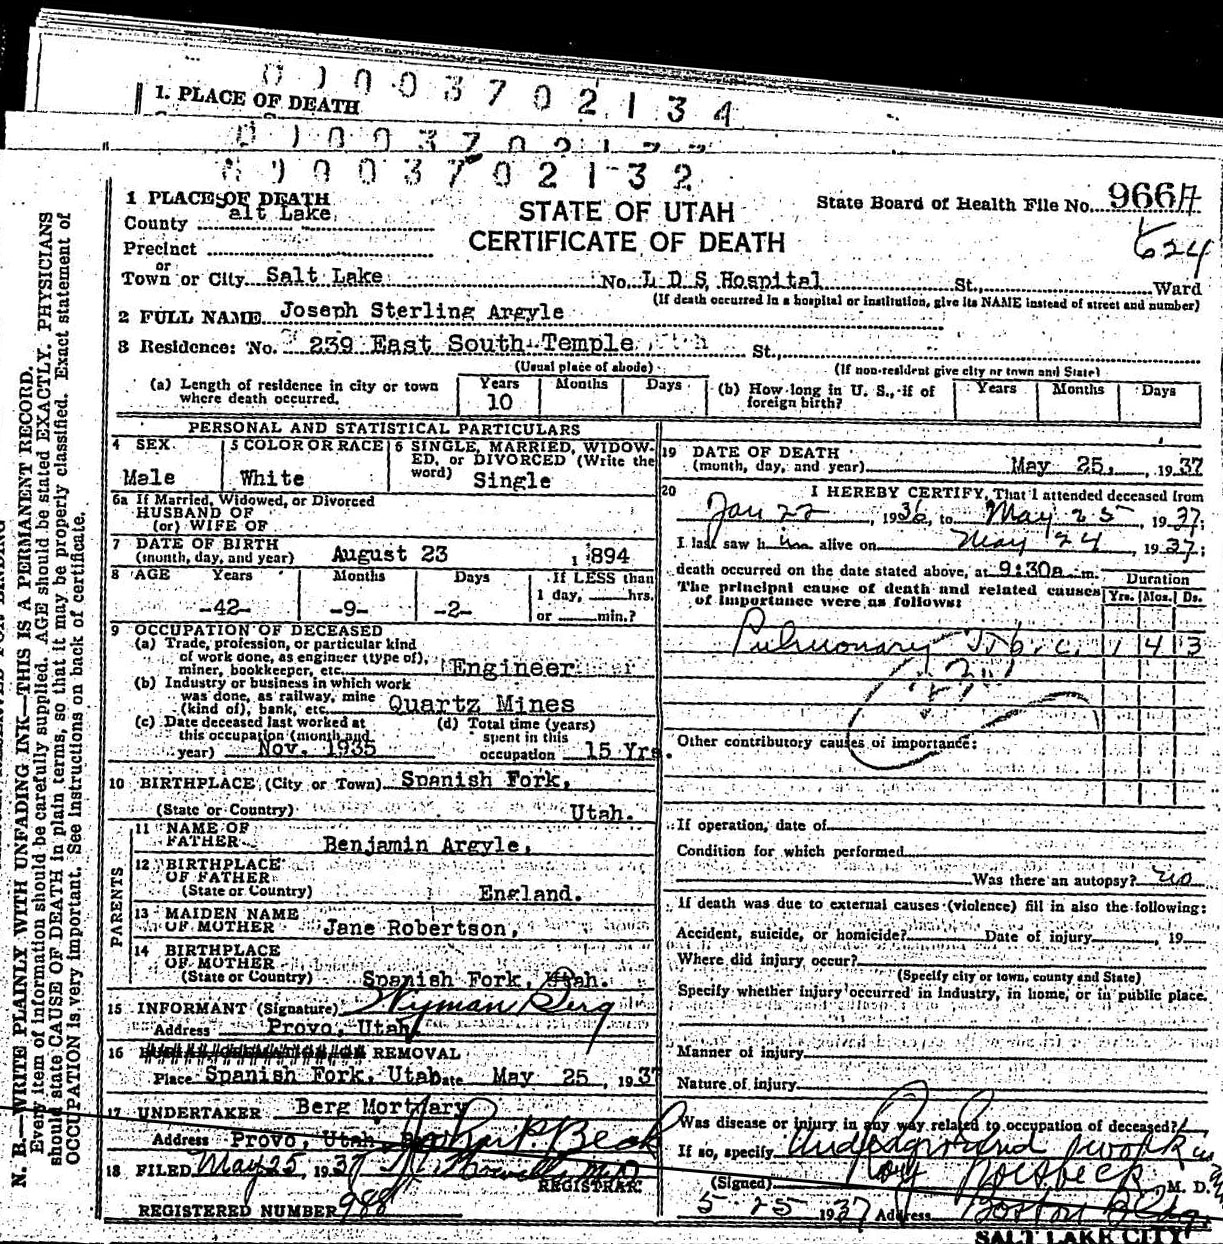 1. PLACE OF DEATH
0 0 0 3 7 0 2 1 3 4
0 0 0 3 7 0 2 1
0 0 0 3 7 0 2 1 3 2
1 PLACE OF DEATH
County alt Lake
Precinct
or
Town or City Salt Lake No. L D S Hospital St., Ward
STATE OF UTAH
CERTIFICATE OF DEATH
State Board of Health File No. 966
624
(If death occurred in a hospital or institution, give its NAME instead of street and number)
2 FULL NAME Joseph Sterling Argyle
3 Residence: No. 239 East South Temple St.,
(Usual place of abode) (If non-resident give city or town and State)
(a) Length of residence in city or town where death occurred. Years 10 Months Days
(b) How long in U. S., if of foreign birth? Years Months Days
PERSONAL AND STATISTICAL PARTICULARS
4 SEX Male
5 COLOR OR RACE White
6 SINGLE, MARRIED, WIDOWED, or DIVORCED (Write the word) Single
6a If Married, Widowed, or Divorced
HUSBAND OF
(or) WIFE OF
7 DATE OF BIRTH
(month, day, and year) August 23 , 1894
8 AGE Years Months Days If LESS than
1 day, hrs.
-42- -9- -2- or min.?
9 OCCUPATION OF DECEASED
(a) Trade, profession, or particular kind
of work done, as engineer (type of),
miner, bookkeeper, etc. Engineer
(b) Industry or business in which work
was done, as railway, mine
(kind of), bank, etc. Quartz Mines
(c) Date deceased last worked at
this occupation (month and
year) Nov. 1935
(d) Total time (years)
spent in this
occupation 15 Yrs.
10 BIRTHPLACE (City or Town) Spanish Fork,
(State or Country) Utah.
PARENTS
11 NAME OF
FATHER Benjamin Argyle,
12 BIRTHPLACE
OF FATHER
(State or Country) England.
13 MAIDEN NAME
OF MOTHER Jane Robertson,
14 BIRTHPLACE
OF MOTHER
(State or Country) Spanish Fork, Utah.
15 INFORMANT (Signature) Wyman Berg
Address Provo, Utah
16 REMOVAL
Place Spanish Fork, Utah Date May 25 , 1937
17 UNDERTAKER Berg Mortuary
Address Provo, Utah
18 FILED May 25, 1937
REGISTRAR.
REGISTERED NUMBER 988
19 DATE OF DEATH
(month, day, and year) May 25, , 1937
20 I HEREBY CERTIFY, That I attended deceased from
Jan 22 , 1936, to May 25 , 1937;
I last saw him alive on May 24 , 1937;
death occurred on the date stated above, at 9:30a m.
The principal cause of death and related causes
of importance were as follows:
Duration
Yrs. Mos. Ds.
Pulmonary T.b.c. 1 4 3
Other contributory causes of importance:
If operation, date of
Condition for which performed
Was there an autopsy? no
If death was due to external causes (violence) fill in also the following:
Accident, suicide, or homicide? Date of injury , 19
Where did injury occur?
(Specify city or town, county and State)
Specify whether injury occurred in industry, in home, or in public place.
Manner of injury
Nature of injury
Was disease or injury in any way related to occupation of deceased?
If so, specify Underground work in
(Signed) M. D.
5-25 1937 Address Boston Bldg.
SALT LAKE CITY
N. B.—WRITE PLAINLY WITH UNFADING INK—THIS IS A PERMANENT RECORD.
Every item of information should be carefully supplied. AGE should be stated EXACTLY. PHYSICIANS
should state CAUSE OF DEATH in plain terms, so that it may be properly classified. Exact statement of
OCCUPATION is very important. See instructions on back of certificate.